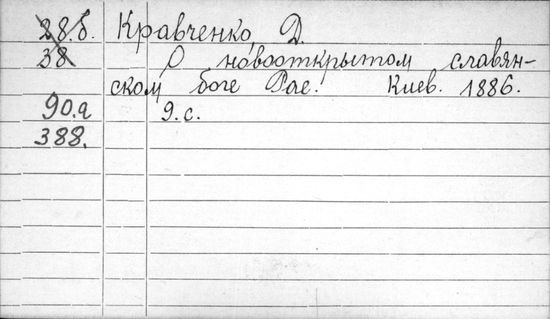 28.б. Кравченко, Д.
38 О новооткрытом славян-
ском боге Рае. Киев. 1886.
90.а 9.с.
388.